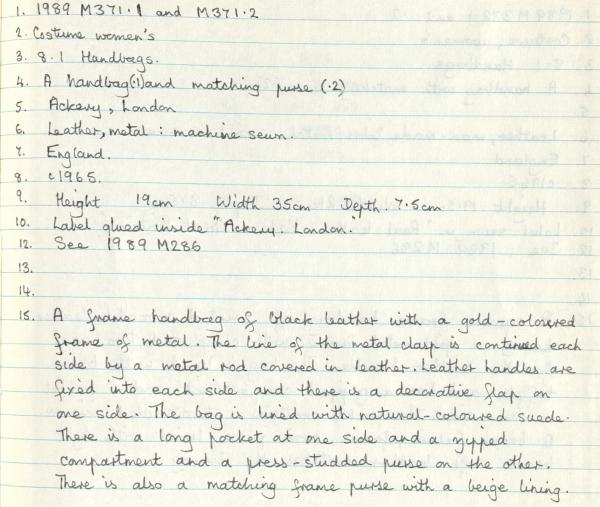 1. 1989 M371.1 and M371.2
2. Costume women's
3. 8.1 Handbags.
4. A handbag(.1)and matching purse (.2)
5. Ackery, London
6. Leather, metal : machine sewn.
7. England.
8. c1965.
9. Height 19cm Width 35cm Depth. 7.5cm
10. Label glued inside "Ackery. London.
12. See 1989 M286
13.
14.
15. A frame handbag of black leather with a gold-coloured
frame of metal. The line of the metal clasp is continued each
side by a metal rod covered in leather. Leather handles are
fixed into each side and there is a decorative flap on
one side. The bag is lined with natural-coloured suede.
There is a long pocket at one side and a zipped
compartment and a press-studded purse on the other.
There is also a matching frame purse with a beige lining.